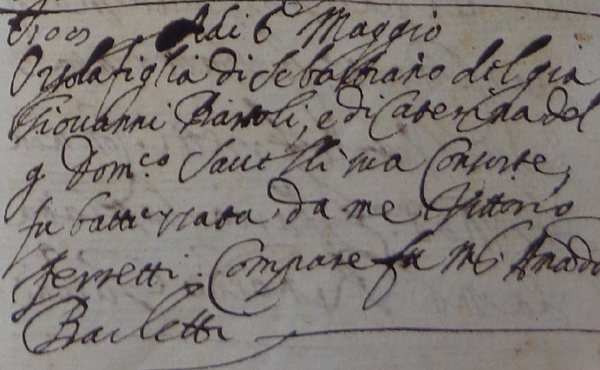 Adi 6 Maggio
Orsola figlia di Sebastiano del già
Giovanni Bartoli, e di Caterina del
q Dom.co Savelli sua Consorte,
fu battezzata da me Vittorio
Ferretti. Compare fu Mr
Barletti